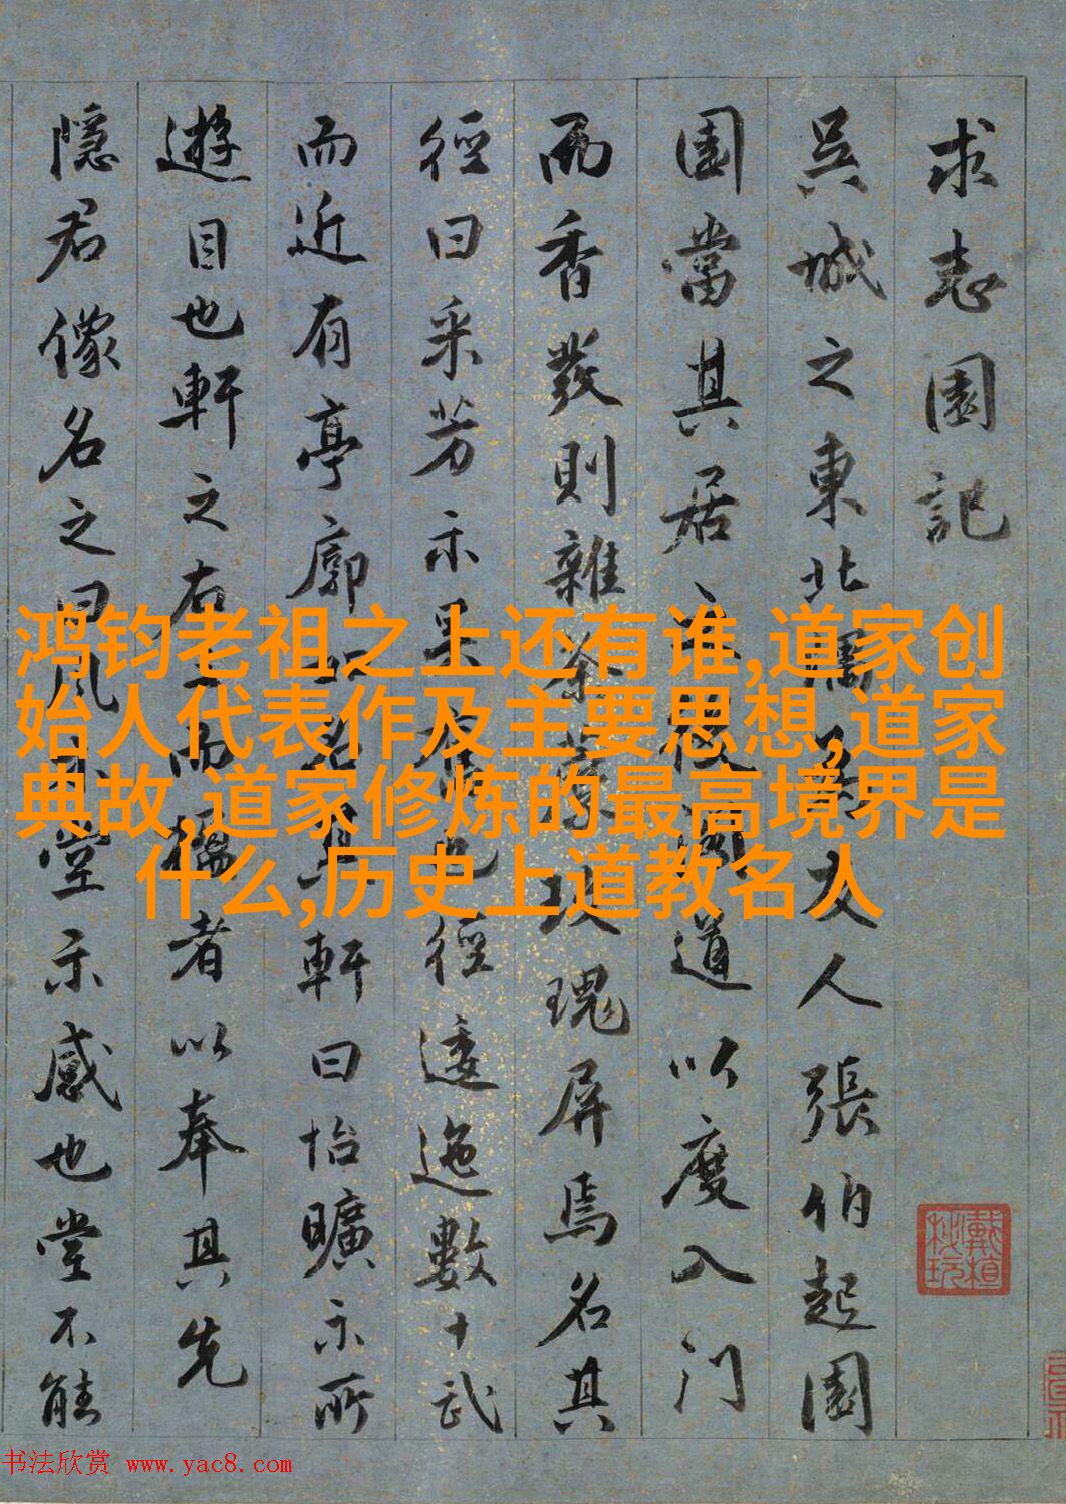 求志園記
吳城之東北爲吾友人張伯起園
園當其居之後道以度入門
而香發則雜荼蘼玫瑰屏焉名其
徑曰采芳示也徑逶迤數十武
而近有亭廓如名其軒曰怡曠示所
遊目也軒之右而楹者以奉其先
隱君像名之曰風木堂示感也堂不能
鸿钧老祖之上还有谁,道家创
始人代表作及主要思想,道家
典故,道家修炼的最高境界是
什么,历史上道教名人
书法欣赏 www.yac8.com